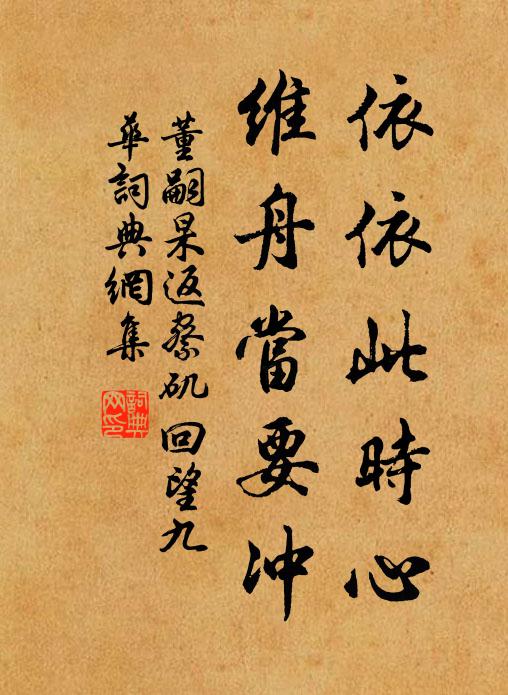 依依此時心
維舟當要冲
董嗣杲返祭矶回望九
華詞典網集
詞典
网印